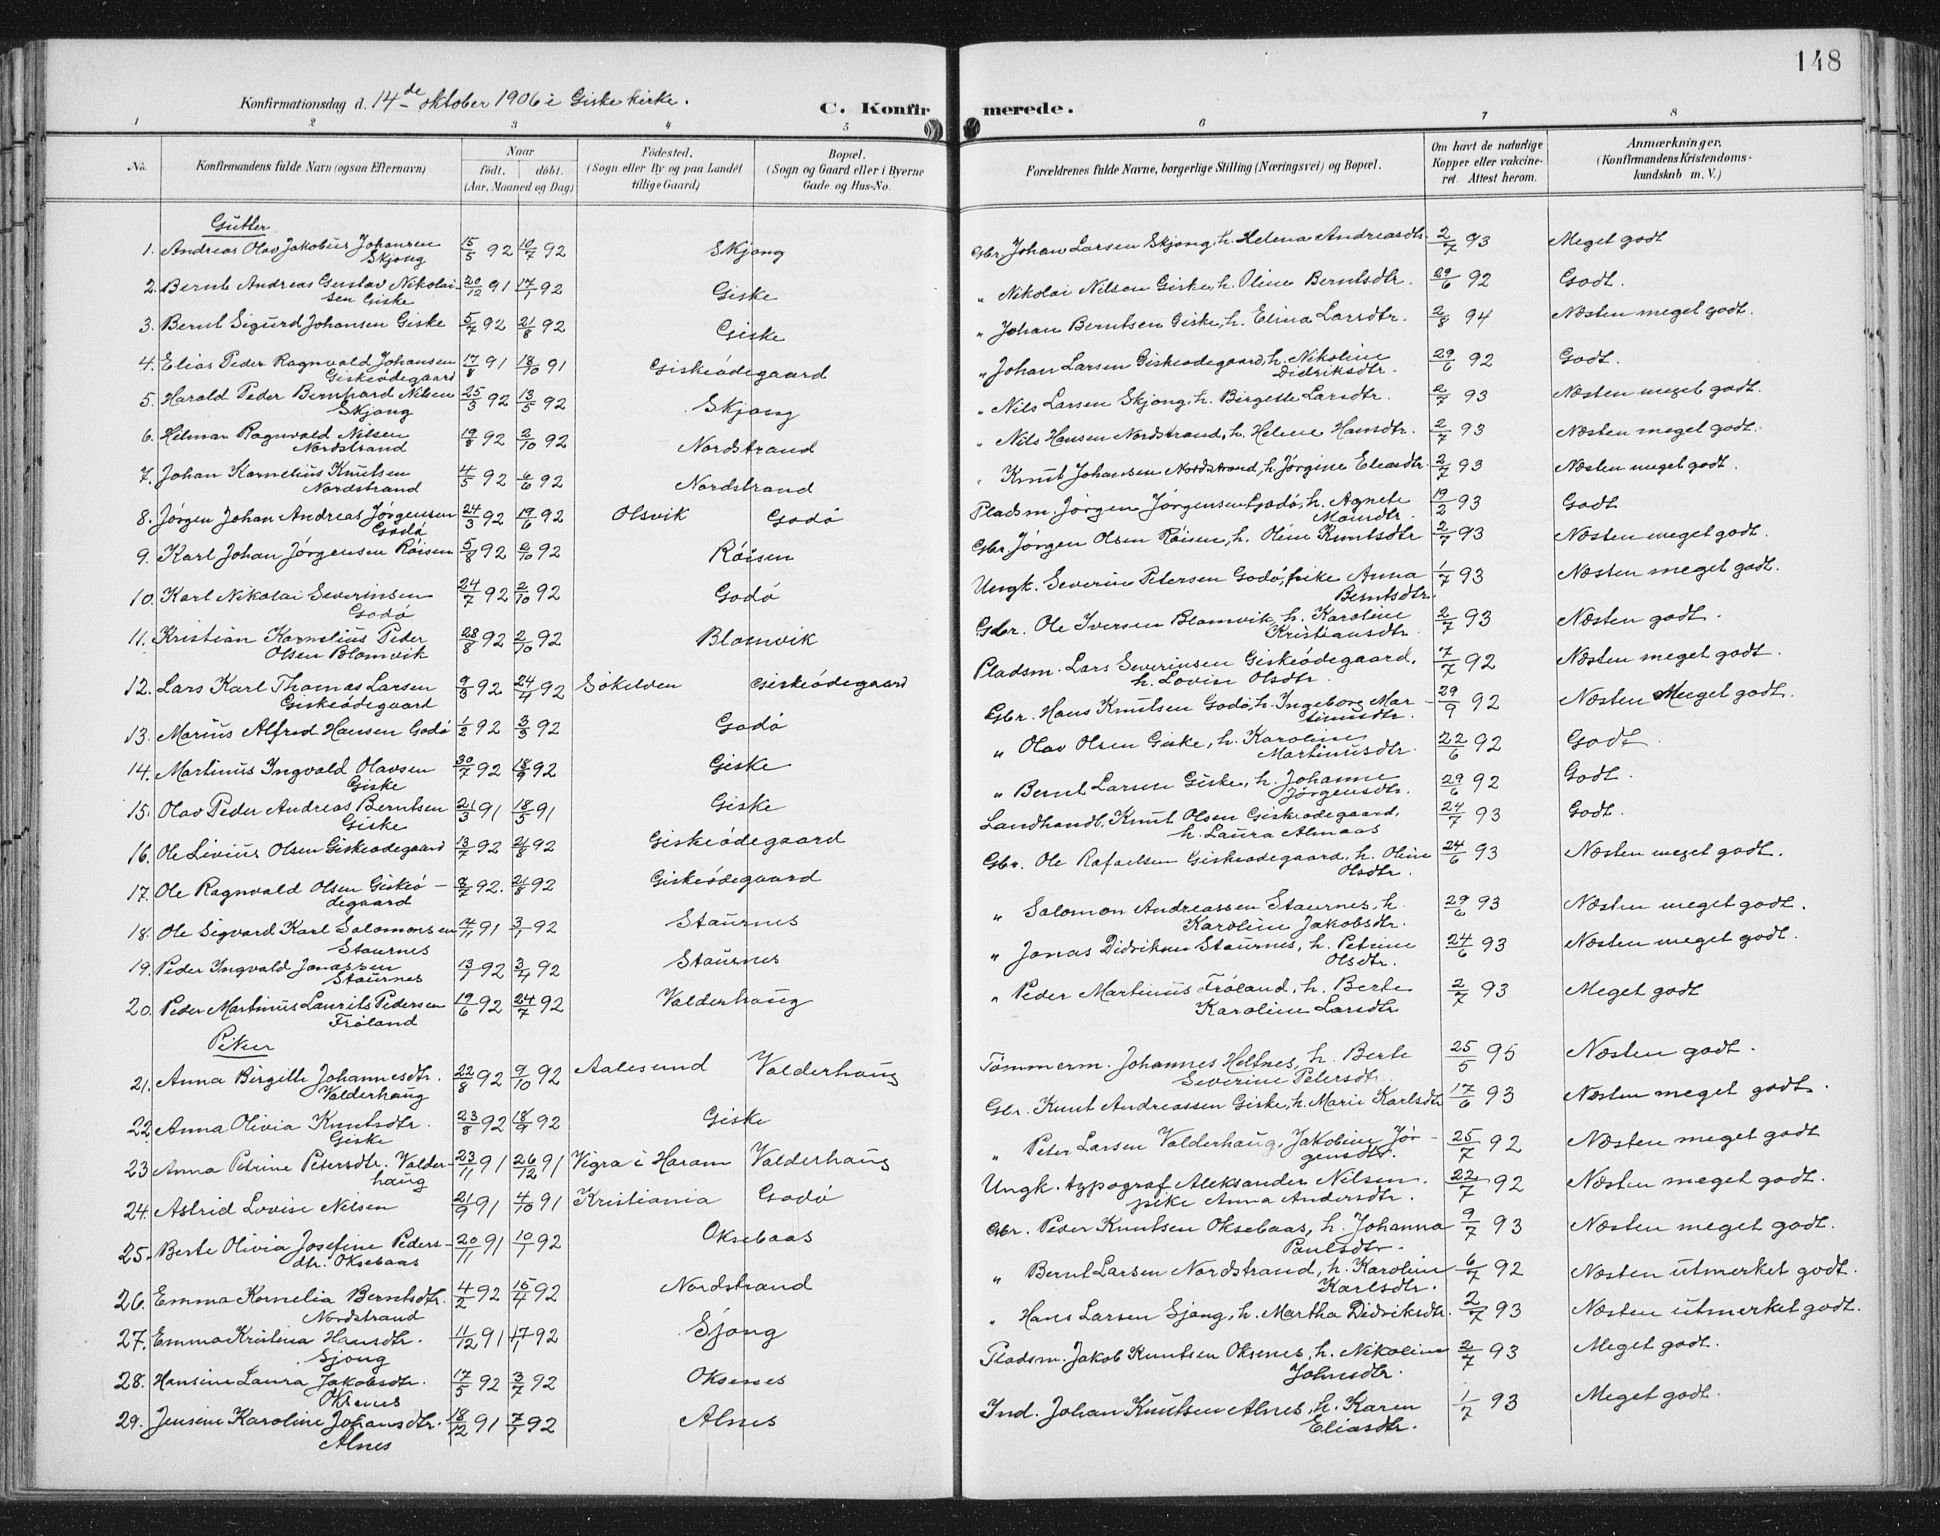 148
Konfirmationsdag d. 14de oktober 1906 i Giske kirke.
C. Konfirmerede.
1 2 3 4 5 6 7 8
No. Konfirmandens fulde Navn (ogsaa Efternavn) Naar født. døbt. (Aar, Maaned og Dag) Födested. (Sogn eller By og paa Landet tillige Gaard) Bopæl. (Sogn og Gaard eller i Byerne Gade og Hus-No. Forældrenes fulde Navne, borgerlige Stilling (Næringsvei) og Bopæl. Om havt de naturlige Kopper eller vakcineret. Attest herom. Anmærkninger, (Konfirmandens Kristendomskundskab m. V.)
Gutter
1. Andreas Olav Jakobus Johansen Skjong 15/5 92 10/7 92 Skjong Gbr. Johan Larsen Skjong, h. Helena Andreasdtr. 2/7 93 Meget godt
2. Bernt Andreas Gustav Nikolaisen Giske 20/12 91 17/1 92 Giske " Nikolai Nilsen Giske, h. Oline Berntsdtr. 29/6 92 Godt.
3. Bernt Sigurd Johansen Giske 5/7 92 21/8 92 Giske " Johan Berntsen Giske, h. Elina Larsdtr. 2/8 94 Næsten meget godt.
4. Elias Peder Ragnvald Johansen Giskeødegaard 17/8 91 18/10 91 Giskeødegaard " Johan Larsen Giskeødegaard, h. Nikoline Didriksdtr. 29/6 92 Godt.
5. Harald Peder Bernhard Nilsen Skjong 25/3 92 13/5 92 Skjong " Nils Larsen Skjong, h. Birgitte Larsdtr. 2/7 93 Næsten meget godt.
6. Hilmar Ragnvald Nilsen Nordstrand 19/8 92 2/10 92 Nordstrand " Nils Hansen Nordstrand, h. Helene Hansdtr. 2/7 93 Næsten meget godt.
7. Johan Kornelius Knutsen Nordstrand 4/5 92 6/6 92 Nordstrand " Knut Johansen Nordstrand, h. Jørgine Eliasdtr. 2/7 93 Næsten meget godt.
8. Jørgen Johan Andreas Jørgensen Godø 24/3 92 19/6 92 Olsvik Godø Pladsm. Jørgen Jørgensen Godø, h. Agnete Monsdtr. 19/2 93 Godt
9. Karl Johan Jørgensen Røisen 5/8 92 2/10 92 Røisen Gbr. Jørgen Olsen Røisen, h. Oline Knutsdtr 2/7 93 Næsten meget godt.
10. Karl Nikolai Severinsen Godø 24/7 92 2/10 92 Godø Ungk. Severin Petersen Godø, pike Anna Berntsdtr. 1/7 93 Næsten meget godt.
11. Kristian Kornelius Peder Olsen Blomvik 28/8 92 2/10 92 Blomvik Gbr. Ole Iversen Blomvik, h. Karoline Kristiansdtr. 2/7 93 Næsten godt.
12. Lars Karl Thomas Larsen Giskeødegaard 9/3 92 24/4 92 Søkelven Giskeødegaard Pladsm. Lars Severinsen Giskeødegaard, h. Lovise Olsdtr. 7/7 92 Næsten meget godt.
13. Marius Alfred Hansen Godø 1/2 92 3/3 92 Godø Gbr. Hans Knutsen Godø, h. Ingeborg Martinusdtr. 29/9 92 Næsten Meget godt.
14. Martinus Ingvald Olavsen Giske 30/7 92 18/9 92 Giske " Olav Olsen Giske, h. Karoline Martinusdtr. 22/6 92 Godt
15. Olav Peder Andreas Berntsen Giske 21/3 91 18/5 91 Giske " Bernt Larsen Giske, h. Johanne Jørgensdtr. 29/6 92 Godt.
16. Ole Livius Olsen Giskeødegaard 13/7 92 21/8 92 Giskeødegaard Landhandl. Knut Olsen Giskeødegaard, h. Laura Almaas 24/7 93 Godt.
17. Ole Ragnvald Olsen Giskeødegaard 8/7 92. 21/8 92 Giskeødegaard Gbr. Ole Rafaelsen Giskeødegaard, h. Oline Olsdtr. 24/6 93 Næsten meget godt.
18. Ole Sigvard Karl Salomonsen Staurnes 4/11 91 3/1 92 Staurnes " Salomon Andreassen Staurnes, h. Karoline Jakobsdtr. 29/6 93 Næsten meget godt.
19. Peder Ingvald Jonassen Staurnes 13/1 92 3/4 92 Staurnes " Jonas Didriksen Staurnes, h. Petrine Olsdtr. 24/6 93 Næsten meget godt.
20. Peder Martinus Laurits Pedersen Frøland 19/6 92 24/7 92 Valderhaug " Peder Martinus Frøland, h. Berte Karoline Larsdtr 2/7 93 Meget godt
Piker
21. Anna Birgitte Johannesdtr. Valderhaug 22/8 92 9/10 92 Aalesund Valderhaug Tømmerm. Johannes Heltnes, h. Berte Severine Petersdtr. 25/5 95 Næsten godt.
22. Anna Olivia Knutsdtr. Giske 23/8 92 18/9 92 Giske Gbr. Knut Andreassen Giske, h. Marie Karlsdtr 17/6 93 Næsten meget godt.
23 Anna Petrine Petersdtr. Valderhaug 23/11 91 26/12 91 Vigra i Haram Valderhaug " Peter Larsen Valderhaug, Jakobine Jørgensdtr. 25/7 92 Næsten meget godt
24. Astrid Lovise Nilsen 21/9 91 4/10 91 Kristiania Godø Ungk. typograf Aleksander Nilsen. pike Anna Andersdtr. 22/7 92 Næsten meget godt.
25. Berte Olivia Josefine Pedersdtr. Oksebaas 20/11 91 10/1 92 Oksebaas Gbr. Peder Knutsen Oksebaas, h. Johanna Paulsdtr. 9/7 93 Næsten meget godt.
26. Emma Kornelia Berntsdtr. Nordstrand 4/2 92 15/4 92 Nordstrand " Bernt Larsen Nordstrand, h. Karoline Karlsdtr. 6/7 92 Næsten utmerket godt.
27. Emma Kristina Hansdtr. Sjong 11/12 91 17/1 92 Sjong " Hans Larsen Sjong, h. Martha Didriksdtr. 2/7 93 Næsten utmerket godt.
28. Hansine Laura Jakobsdtr. Oksenes 17/5 92 3/7 92 Oksenes Pladsm. Jakob Knutsen Oksnes, h. Nikoline Johnsdtr. 2/7 93 Meget godt.
29. Jensine Karoline Johansdtr. Alnes 18/12 91 7/1 92 Alnes Ind. Johan Knutsen Alnes, h. Karen Eliasdtr. 1/7 93 Meget godt.